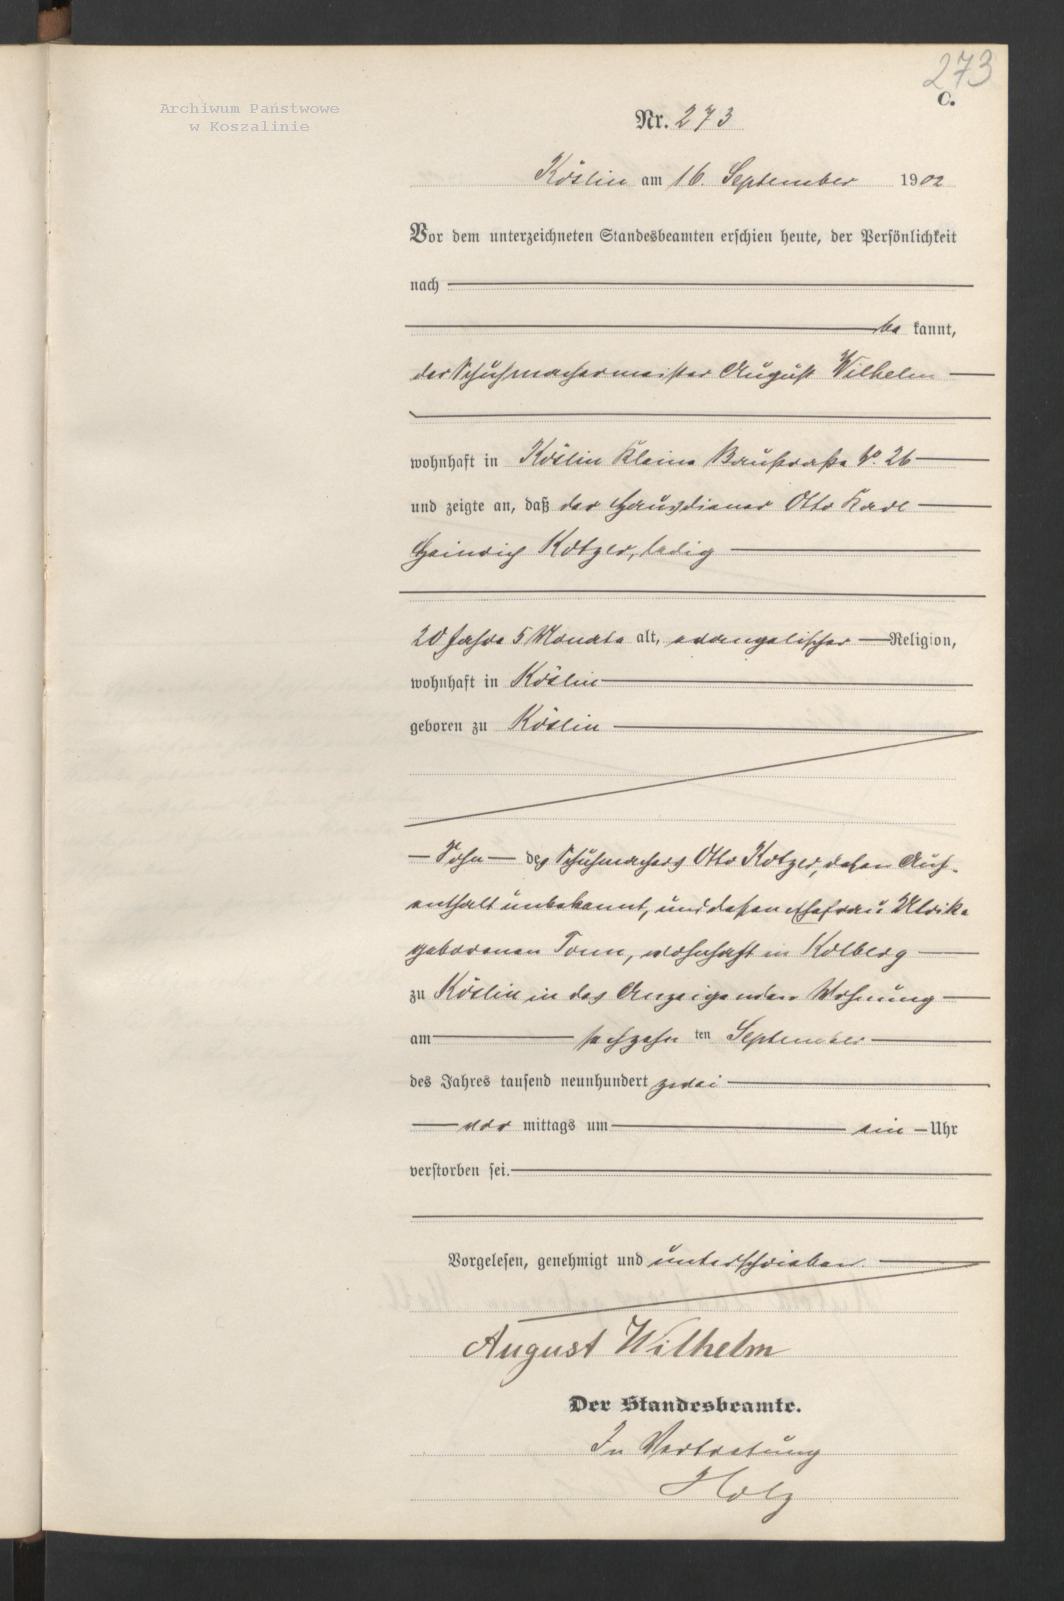 273
C.
Archiwum Państwowe
w Koszalinie
Nr. 273
Köslin am 16. September 1902
Vor dem unterzeichneten Standesbeamten erschien heute, der Persönlichkeit
nach
be kannt,
der Schuhmachermeister August Wilhelm
wohnhaft in Köslin kleine Baustraße No. 26
und zeigte an, daß der Hausdiener Otto Karl
Heinrich Kotzer, ledig
20 Jahre 5 Monate alt, evangelischer Religion,
wohnhaft in Köslin
geboren zu Köslin
Sohn des Schuhmachers Otto Kotzer, dessen Auf-
enthalt unbekannt, und dessen Ehefrau Ulrike
geborenen Tonn, wohnhaft in Kolberg
zu Köslin in des Anzeigenden Wohnung
am sechzehn ten September
des Jahres tausend neunhundert zwei
vor mittags um ein Uhr
verstorben sei.
Vorgelesen, genehmigt und unterschrieben.
August Wilhelm
Der Standesbeamte.
In Vertretung
Holz